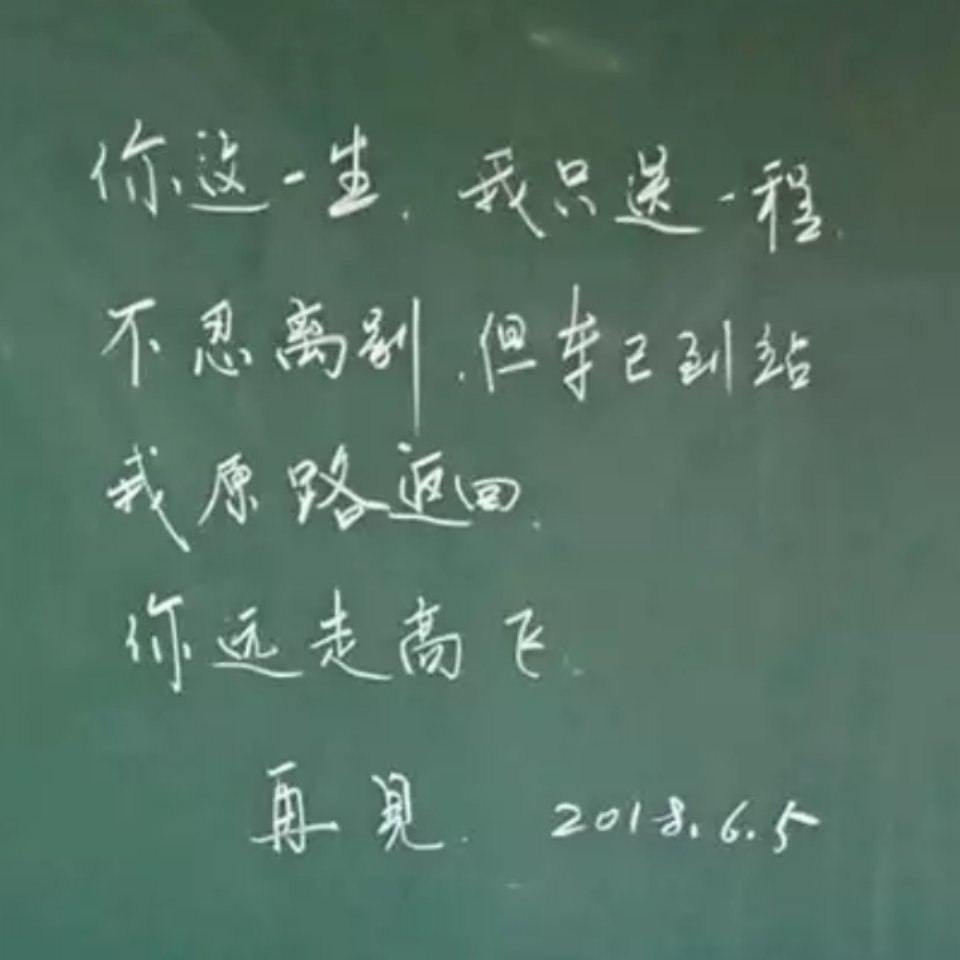 你这一生，我只送一程，
不忍离别，但车已到站
我原路返回，
你远走高飞。
再見。 2018.6.5